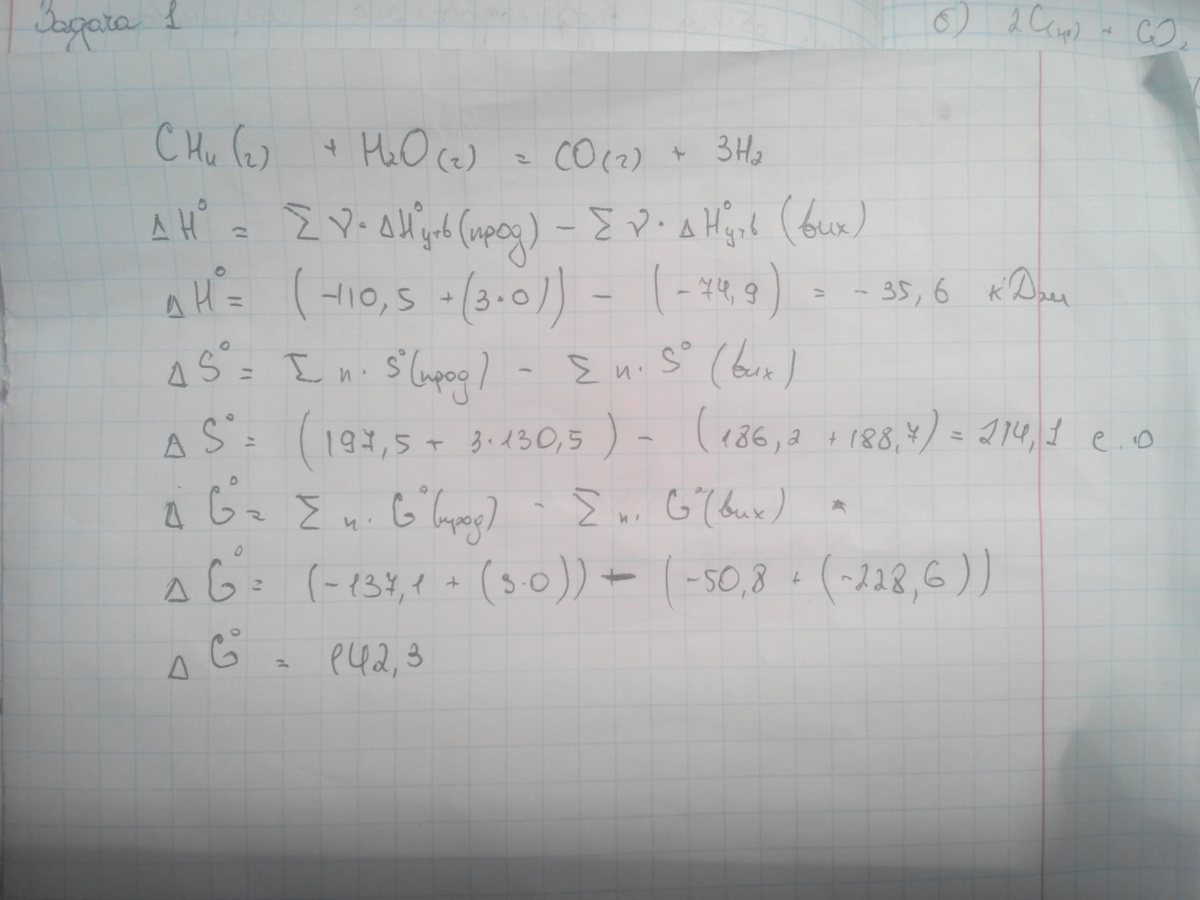 Задача 1
б) 2C(гр) + CO₂
CH₄(г) + H₂O(г) = CO(г) + 3H₂
ΔH° = Σ ν · ΔH°утв(прод) - Σ ν · ΔH°утв (вих)
ΔH° = (-110,5 + (3·0)) - (-74,9) = -35,6 кДж
ΔS° = Σ n · S°(прод) - Σ n · S° (вих)
ΔS° = (197,5 + 3·130,5) - (186,2 + 188,7) = 214,1 е.о
ΔG° = Σ n · G°(прод) - Σ n · G°(вих)
ΔG° = (-137,1 + (3·0)) - (-50,8 + (-228,6))
ΔG° = 142,3